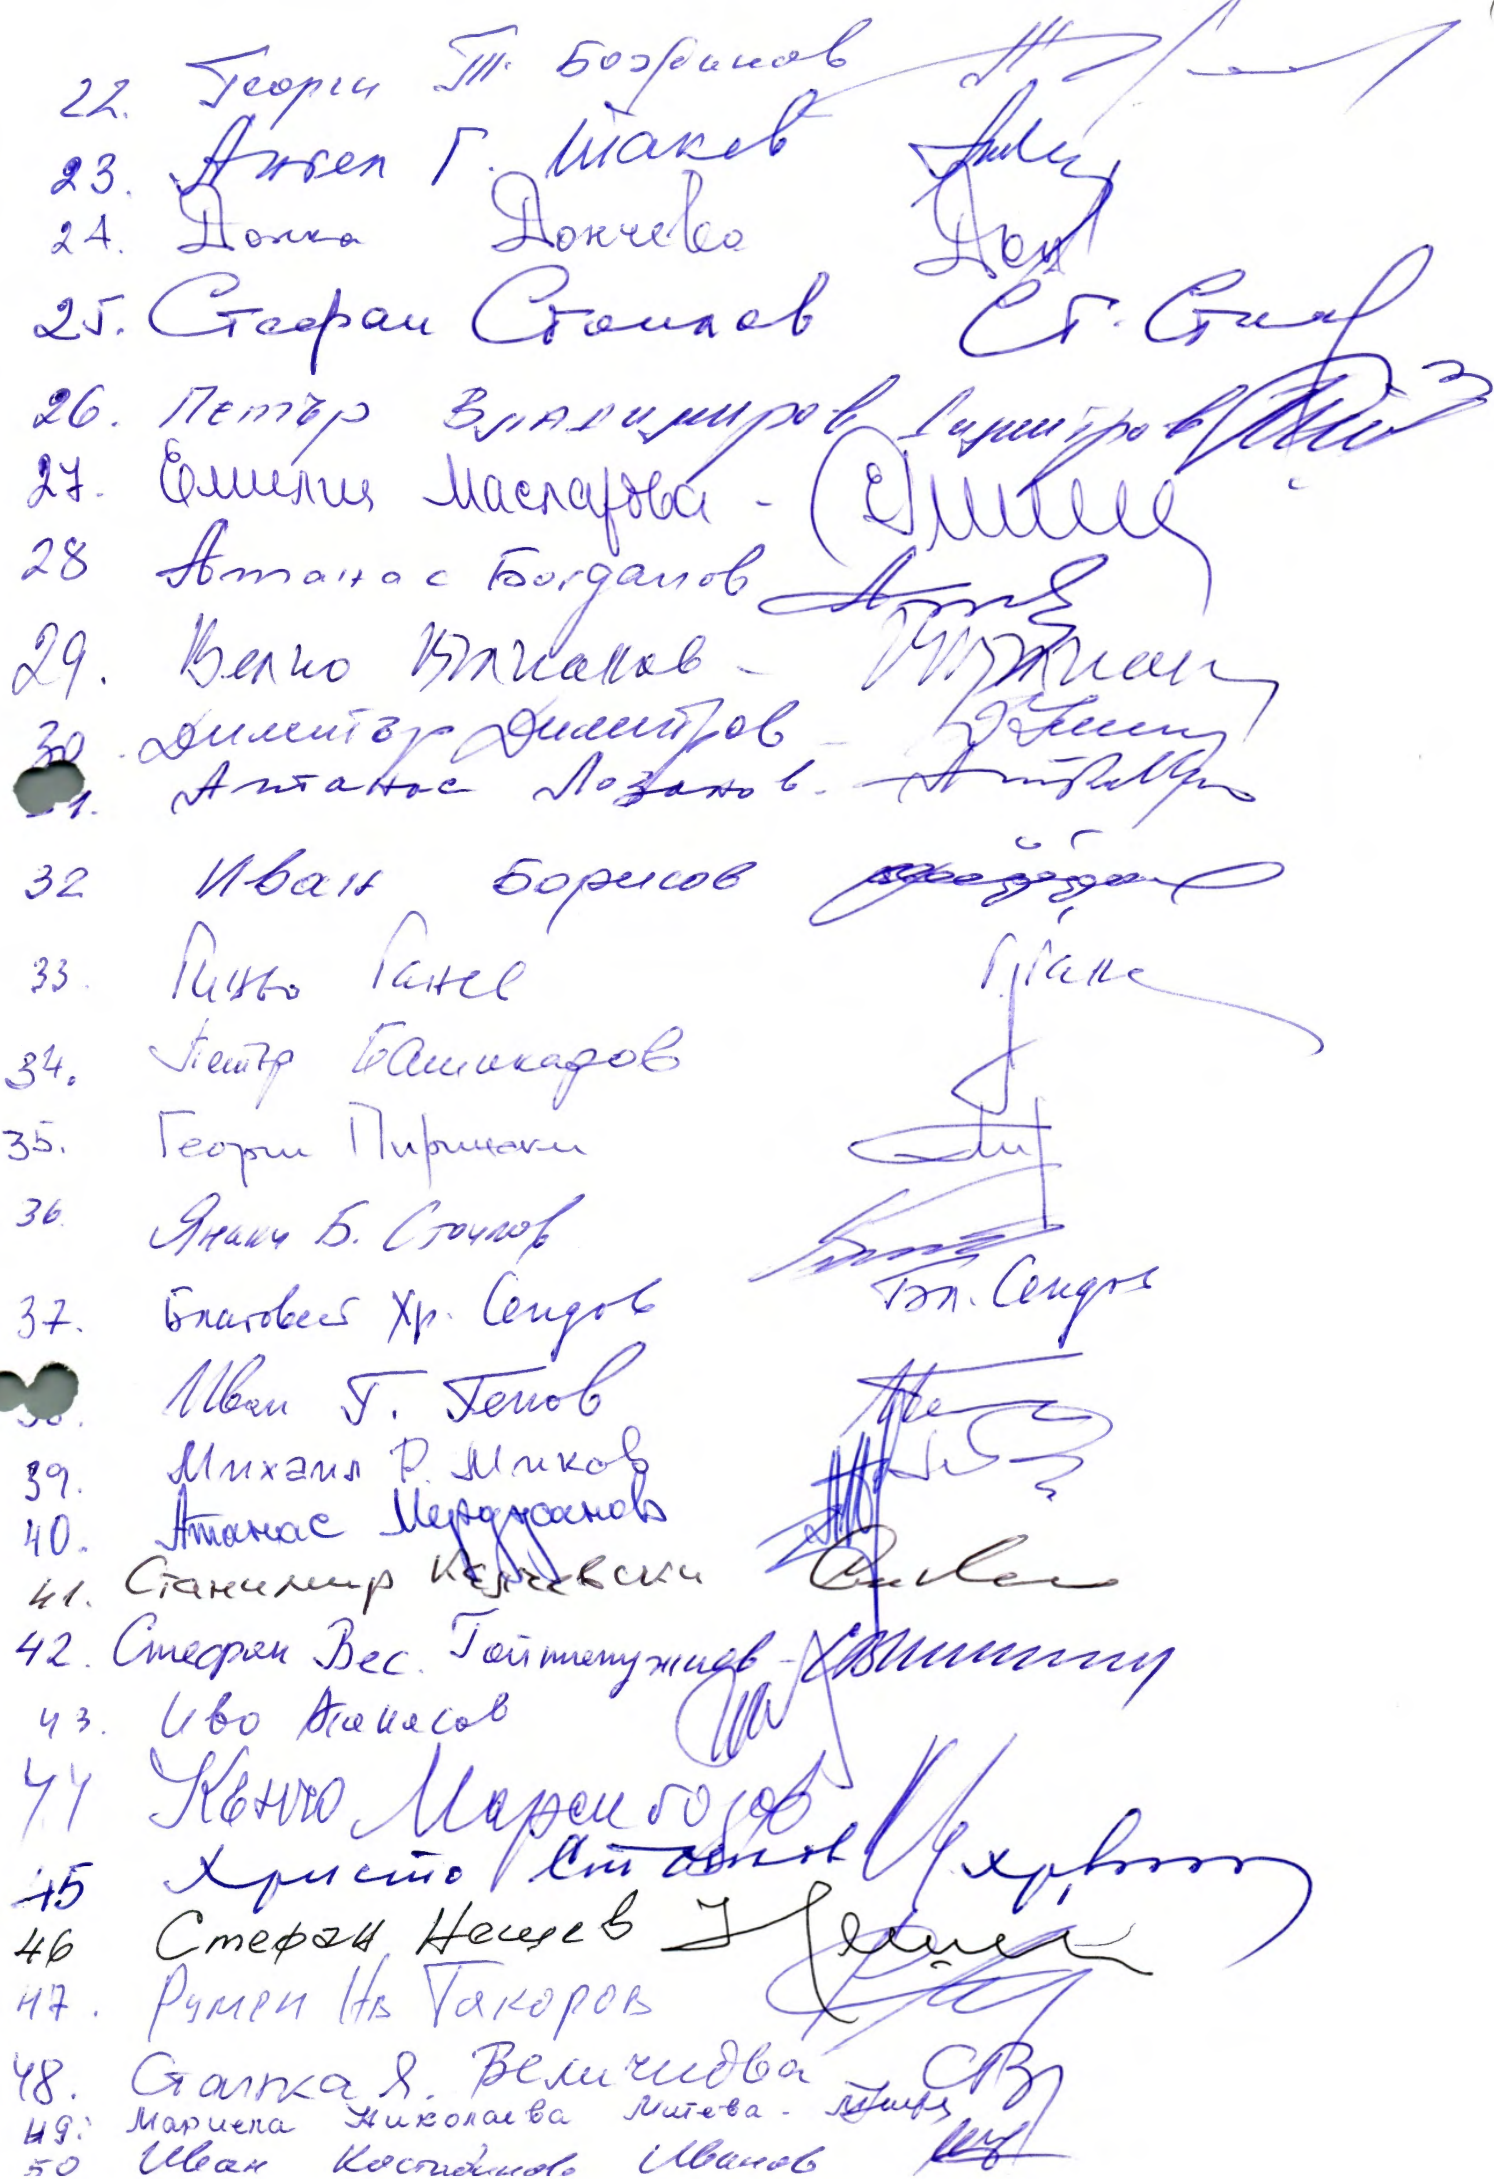 22. Георги Т. Божинов
23. Ангел Г. Такев
24. Донка Дончева
25. Стефан Стоилов Ст. Стоилов
26. Петър Владимиров Димитров
27. Емилия Масларова -
28 Атанас Богданов
29. Велко Вълканов -
30. Димитър Димитров -
31. Атанас Лозанов.
32 Иван Борисов
33. Гиньо Ганев
34. Петър Башикаров
35. Георги Пирински
36. Янаки Б. Стоилов
37. Благовест Хр. Сендов Бл. Сендов
38. Иван Г. Генов
39. Михаил Р. Миков
40. Атанас Мерджанов
41. Станимир Калчевски
42. Стефан Вес. Гайтанджиев -
43. Иво Атанасов
44 Кънчо Марангозов
45 Христо Стоянов
46 Стефан Нешев
47. Румен Ив Такоров
48. Станка Я. Величкова СВ
49. Мариела Николаева Митева -
50 Иван Костадинов Иванов